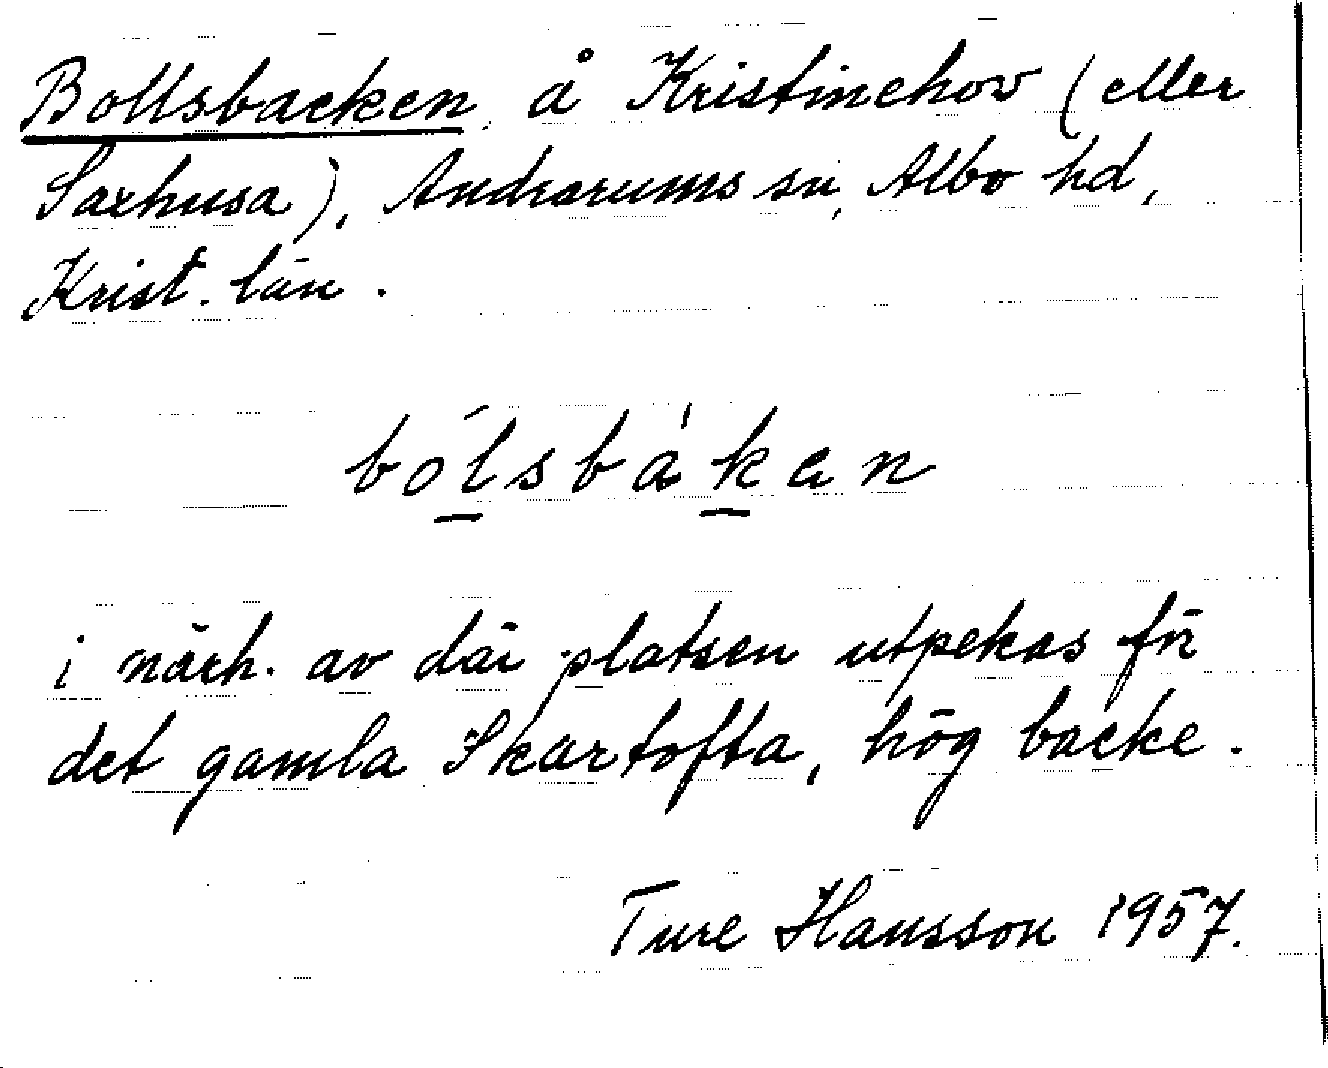 Bollsbacken å Kristinehov (eller
Saxhusa), Andrarums sn, Albo hd,
Krist. län.
bólsbákan
i närh. av där platsen utpekas för
det gamla Skartofta, hög backe.
Ture Hansson 1957.